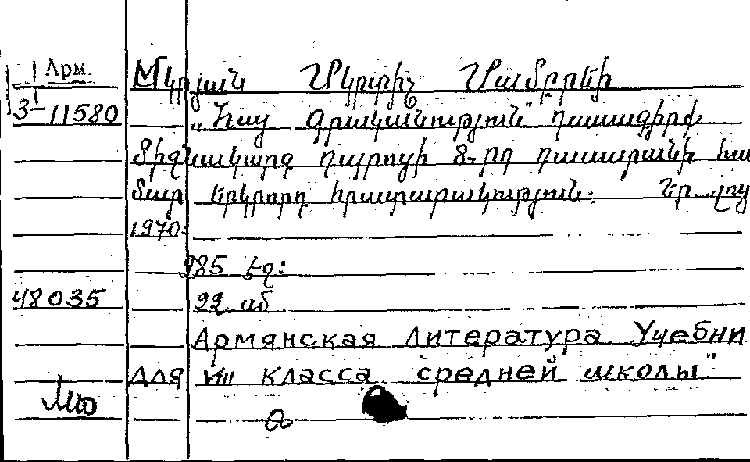 Арм.
Մկրյան Մկրտիչ Մամբրեի
3-11580
„Հայ գրականություն" դասագիրք
միջնակարգ դպրոցի 8-րդ դասարանի հա
մար երկրորդ հրատարակություն: Եր. լույ
1970:
285 էջ:
48035
22 սմ
Армянская литература Учебни
для VIII класса средней школы"